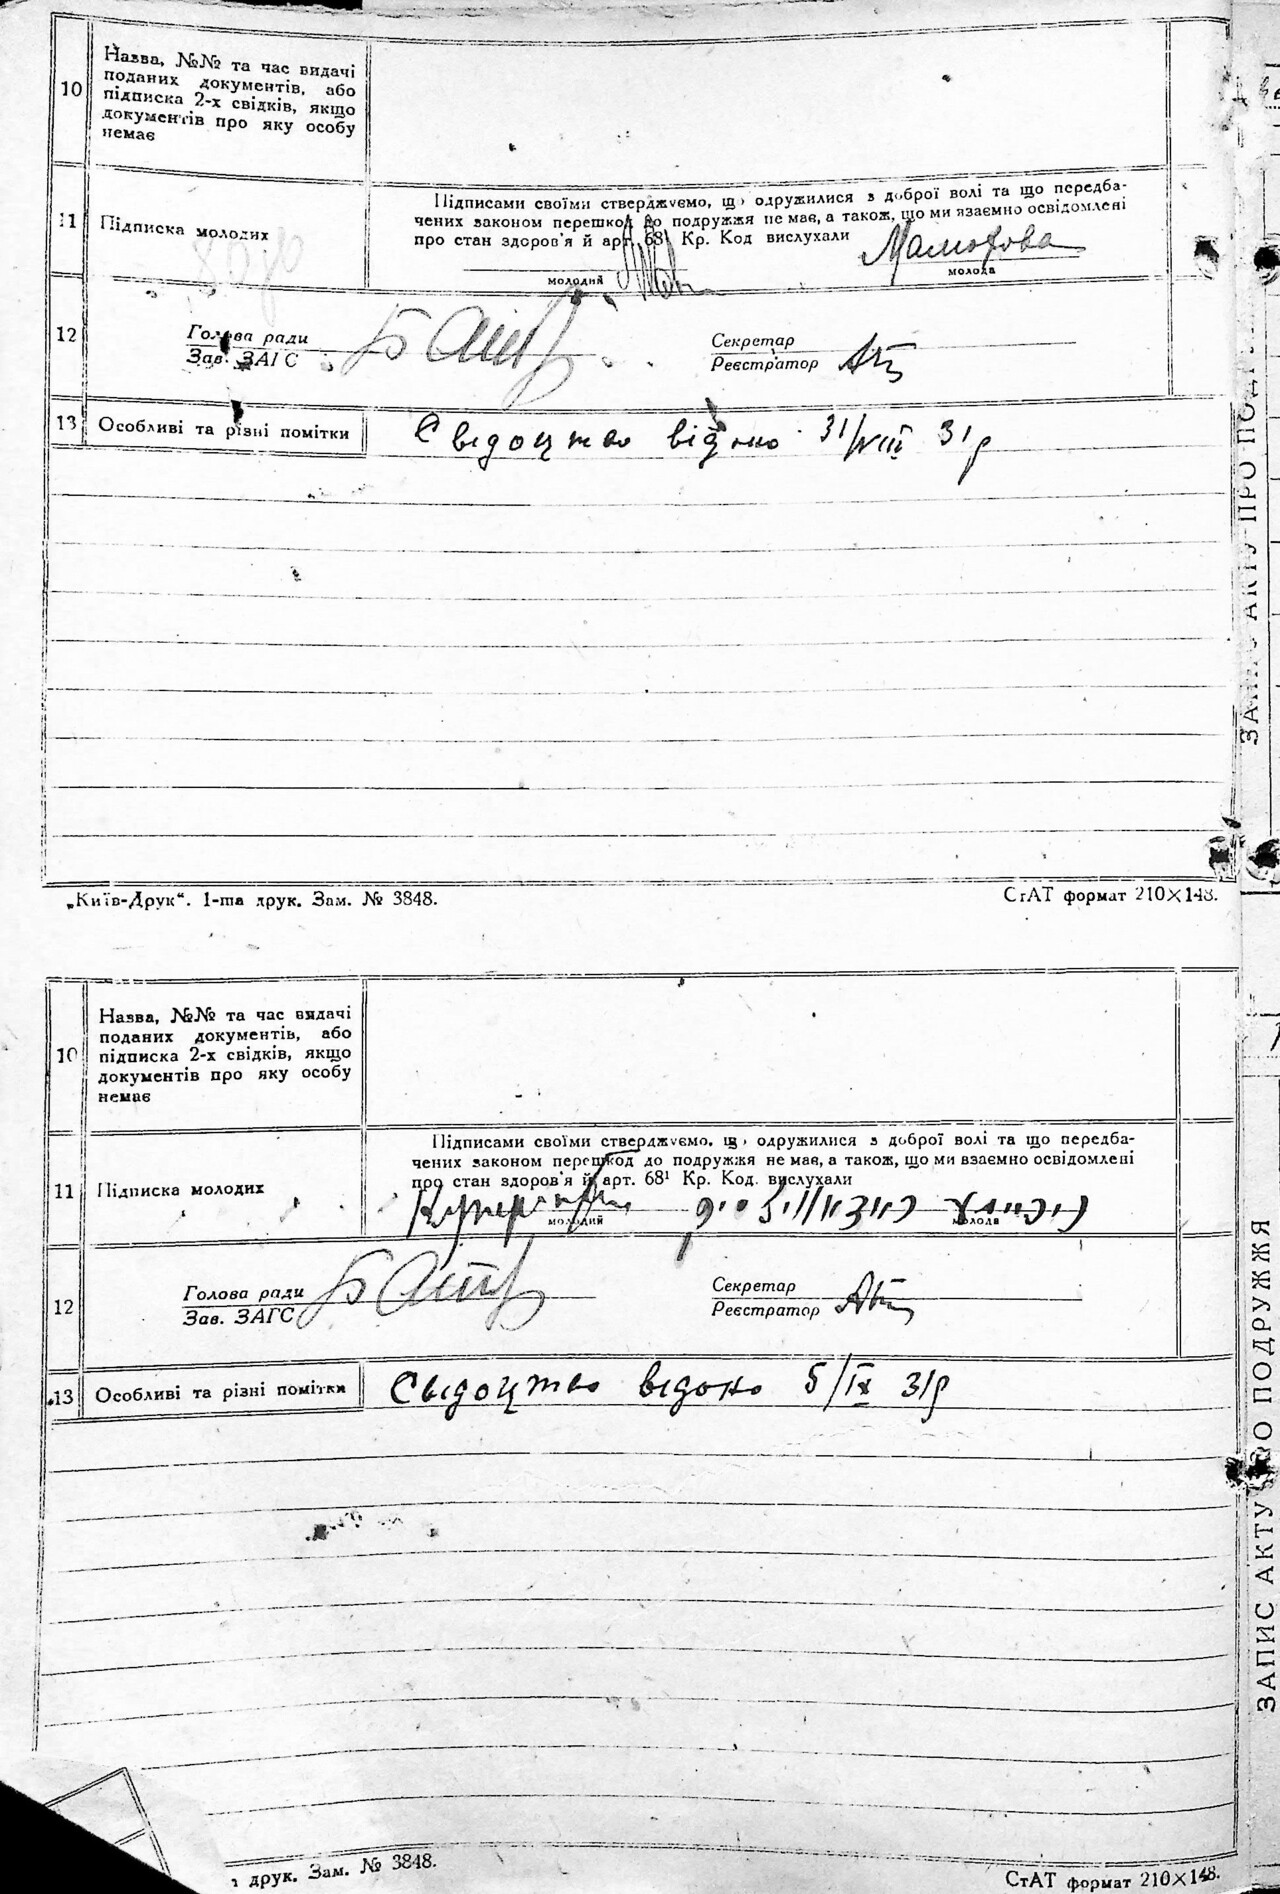 10
Назва, №№ та час видачі
поданих документів, або
підписка 2-х свідків, якщо
документів про яку особу
немає
11
Підписка молодих
Підписами своїми стверджуємо, що одружилися з доброї волі та що передба-
чених законом перешкод до подружжя не має, а також, що ми взаємно освідомлені
про стан здоров'я й арт. 68¹ Кр. Код вислухали
молодий
молода
12
Голова ради
Зав. ЗАГС
Секретар
Реєстратор
13
Особливі та різні помітки
Свідоцтво відано 31/VIII 31р
„Київ-Друк“. 1-ша друк. Зам. № 3848.
СтАТ формат 210×148.
10
Назва, №№ та час видачі
поданих документів, або
підписка 2-х свідків, якщо
документів про яку особу
немає
11
Підписка молодих
Підписами своїми стверджуємо, що одружилися з доброї волі та що передба-
чених законом перешкод до подружжя не має, а також, що ми взаємно освідомлені
про стан здоров'я й арт. 68¹ Кр. Код. вислухали
молодий
молода
12
Голова ради
Зав. ЗАГС
Секретар
Реєстратор
13
Особливі та різні помітки
Свідоцтво відано 5/IX 31р
друк. Зам. № 3848.
СтАТ формат 210×148.
ЗАПИС АКТУ ПРО ПОДРУЖЖЯ